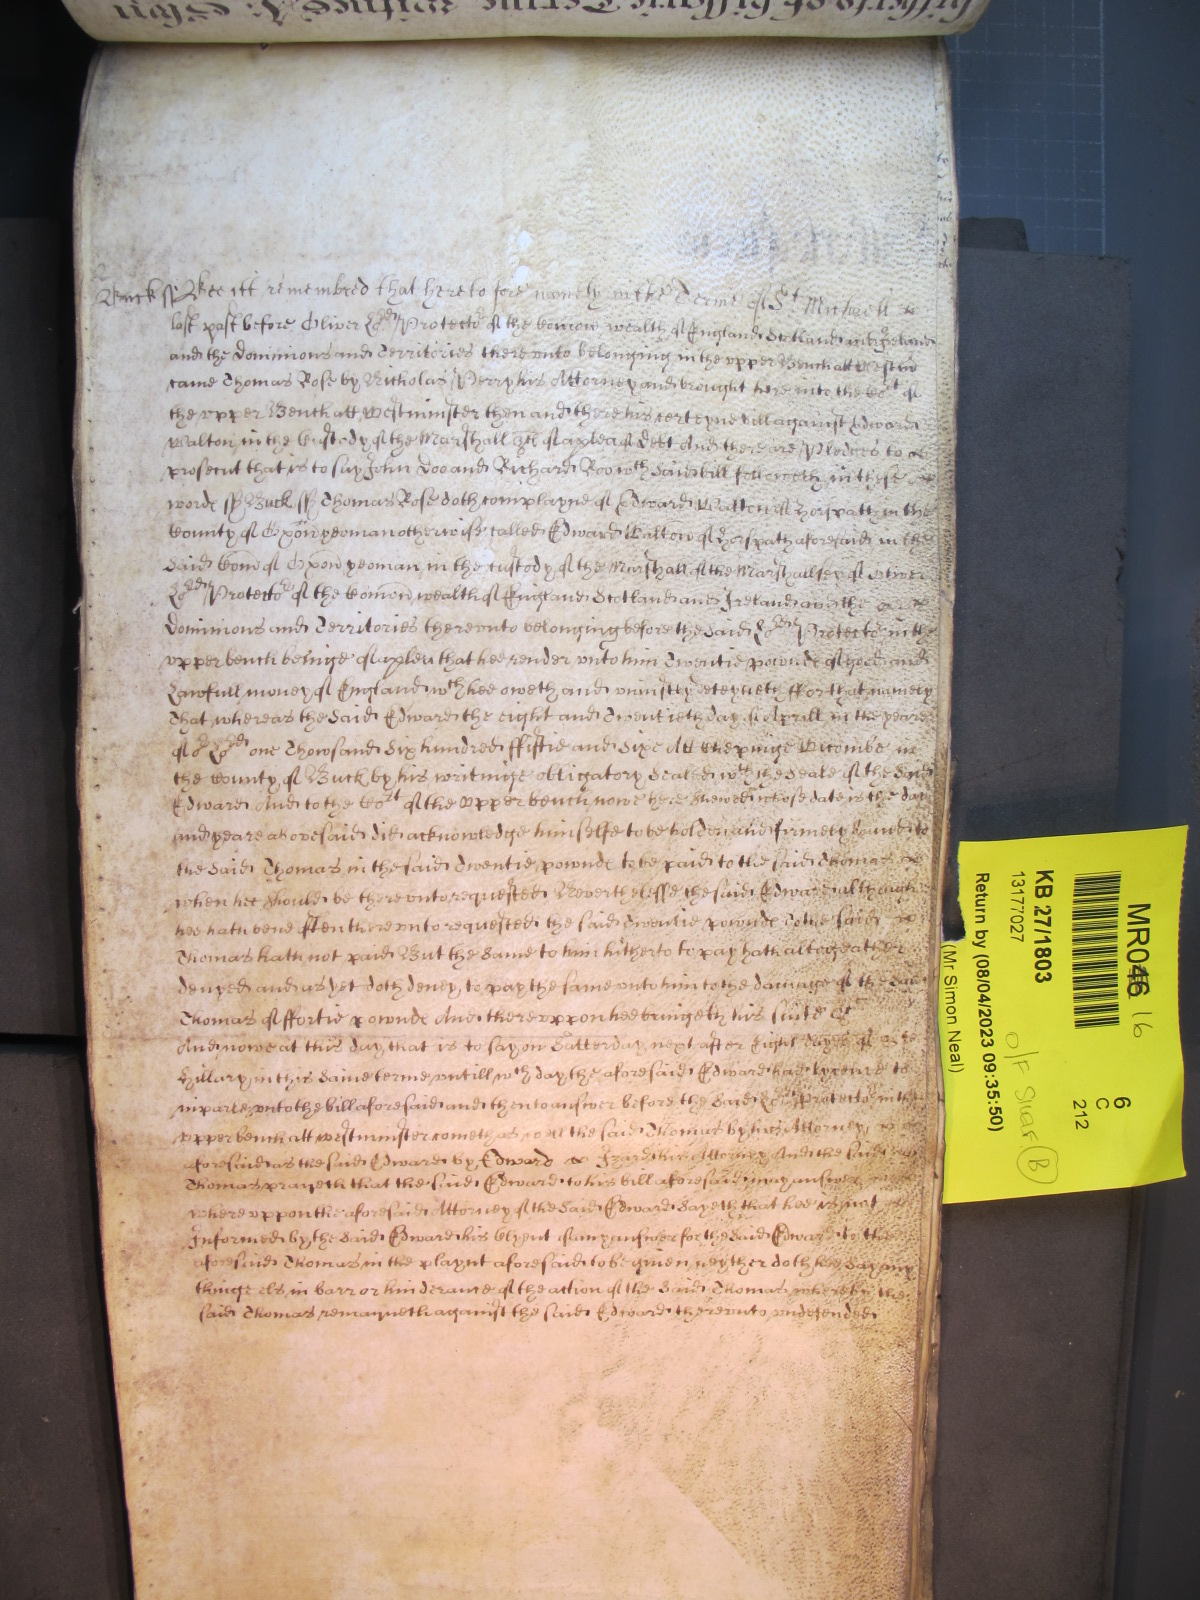 Buck ss Bee itt remembred that heretofore namely in the Terme of St Michaell
last past before Oliver Lord Protector of the Comon wealth of England Scotland and Ireland
and the Dominions and Territories thereunto belonging in the upper Bench att Westmr
came Thomas Rose by Nicholas Perry his Attorney and brought here into the Cort of
the upper Bench att Westminster then and there his certeyne bill against Edward
Walton in the Custody of the Marshall &c of a plea of Debt And there are Pledges to
prosecut that is to say John Doo and Richard Roo wch said bill followeth in these
words ss Buck ss Thomas Rose doth complayne of Edward Walton of Horspath in the
County of Oxon yeoman otherwise called Edward Walton of Horspath aforesaid in the
said County of Oxon yeoman in the custody of the Marshall of the Marshallsey of Oliver
Lord Protector of the Comon wealth of England Scotland and Ireland and the
Dominions and Territories thereunto belonging before the said Lord Protector in the
upper bench beinge of a plea that hee render unto him Twentie pownds of good and
Lawfull money of England wch hee oweth and uniustly deteyneth ffor that namely
That whereas the said Edward the eight and Twentieth day of Aprill in the yeare
of or Lord one Thowsand Six hundred ffiftie and Sixe Att Chepinge Wicombe in
the County of Buck by his writinge obligatory Sealed wth the Seale of the said
Edward And to the Cort of the upper bench nowe here shewed whose date is the day
and yeare abovesaid did acknowledge himselfe to be holden and firmely bound to
the said Thomas in the said Twentie pownds to be paid to the said Thomas
when hee should be thereunto requested Neverthelesse the said Edward although
hee hath bene often thereunto requested the said Twentie pownds to the said
Thomas hath not paid But the same to him hitherto to pay hath altogeather
denyed and as yet doth deney to pay the same unto him to the damage of the said
Thomas of ffortie pownds And thereuppon hee bringeth his suite &c
And nowe at this day that is to say on Satterday next after Eight dayes of
Hillary in this same terme untill wch day the aforesaid Edward had lycence to
imparle unto the bill aforesaid and then to answer before the said Lord Protector in the
upper bench att westminster cometh as well the said Thomas by his Attorney
aforesaid as the said Edward by Edward Izard his Attorney And the said
Thomas prayeth that the said Edward to his bill aforesaid may answer
whereuppon the aforesaid Attorney of the said Edward sayeth that hee is not
Informed by the said Edward his Clyent of any answer for the said Edward to the
aforesaid Thomas in the playnt aforesaid to be given neyther doth hee say any
thinge els in barr or hinderance of the action of the said Thomas whereby the
said Thomas remayneth against the said Edward thereunto undefended
MR046 16
KB 27/1803
13177027
Return by (08/04/2023 09:35:50)
(Mr Simon Neal)
6
C
212
B